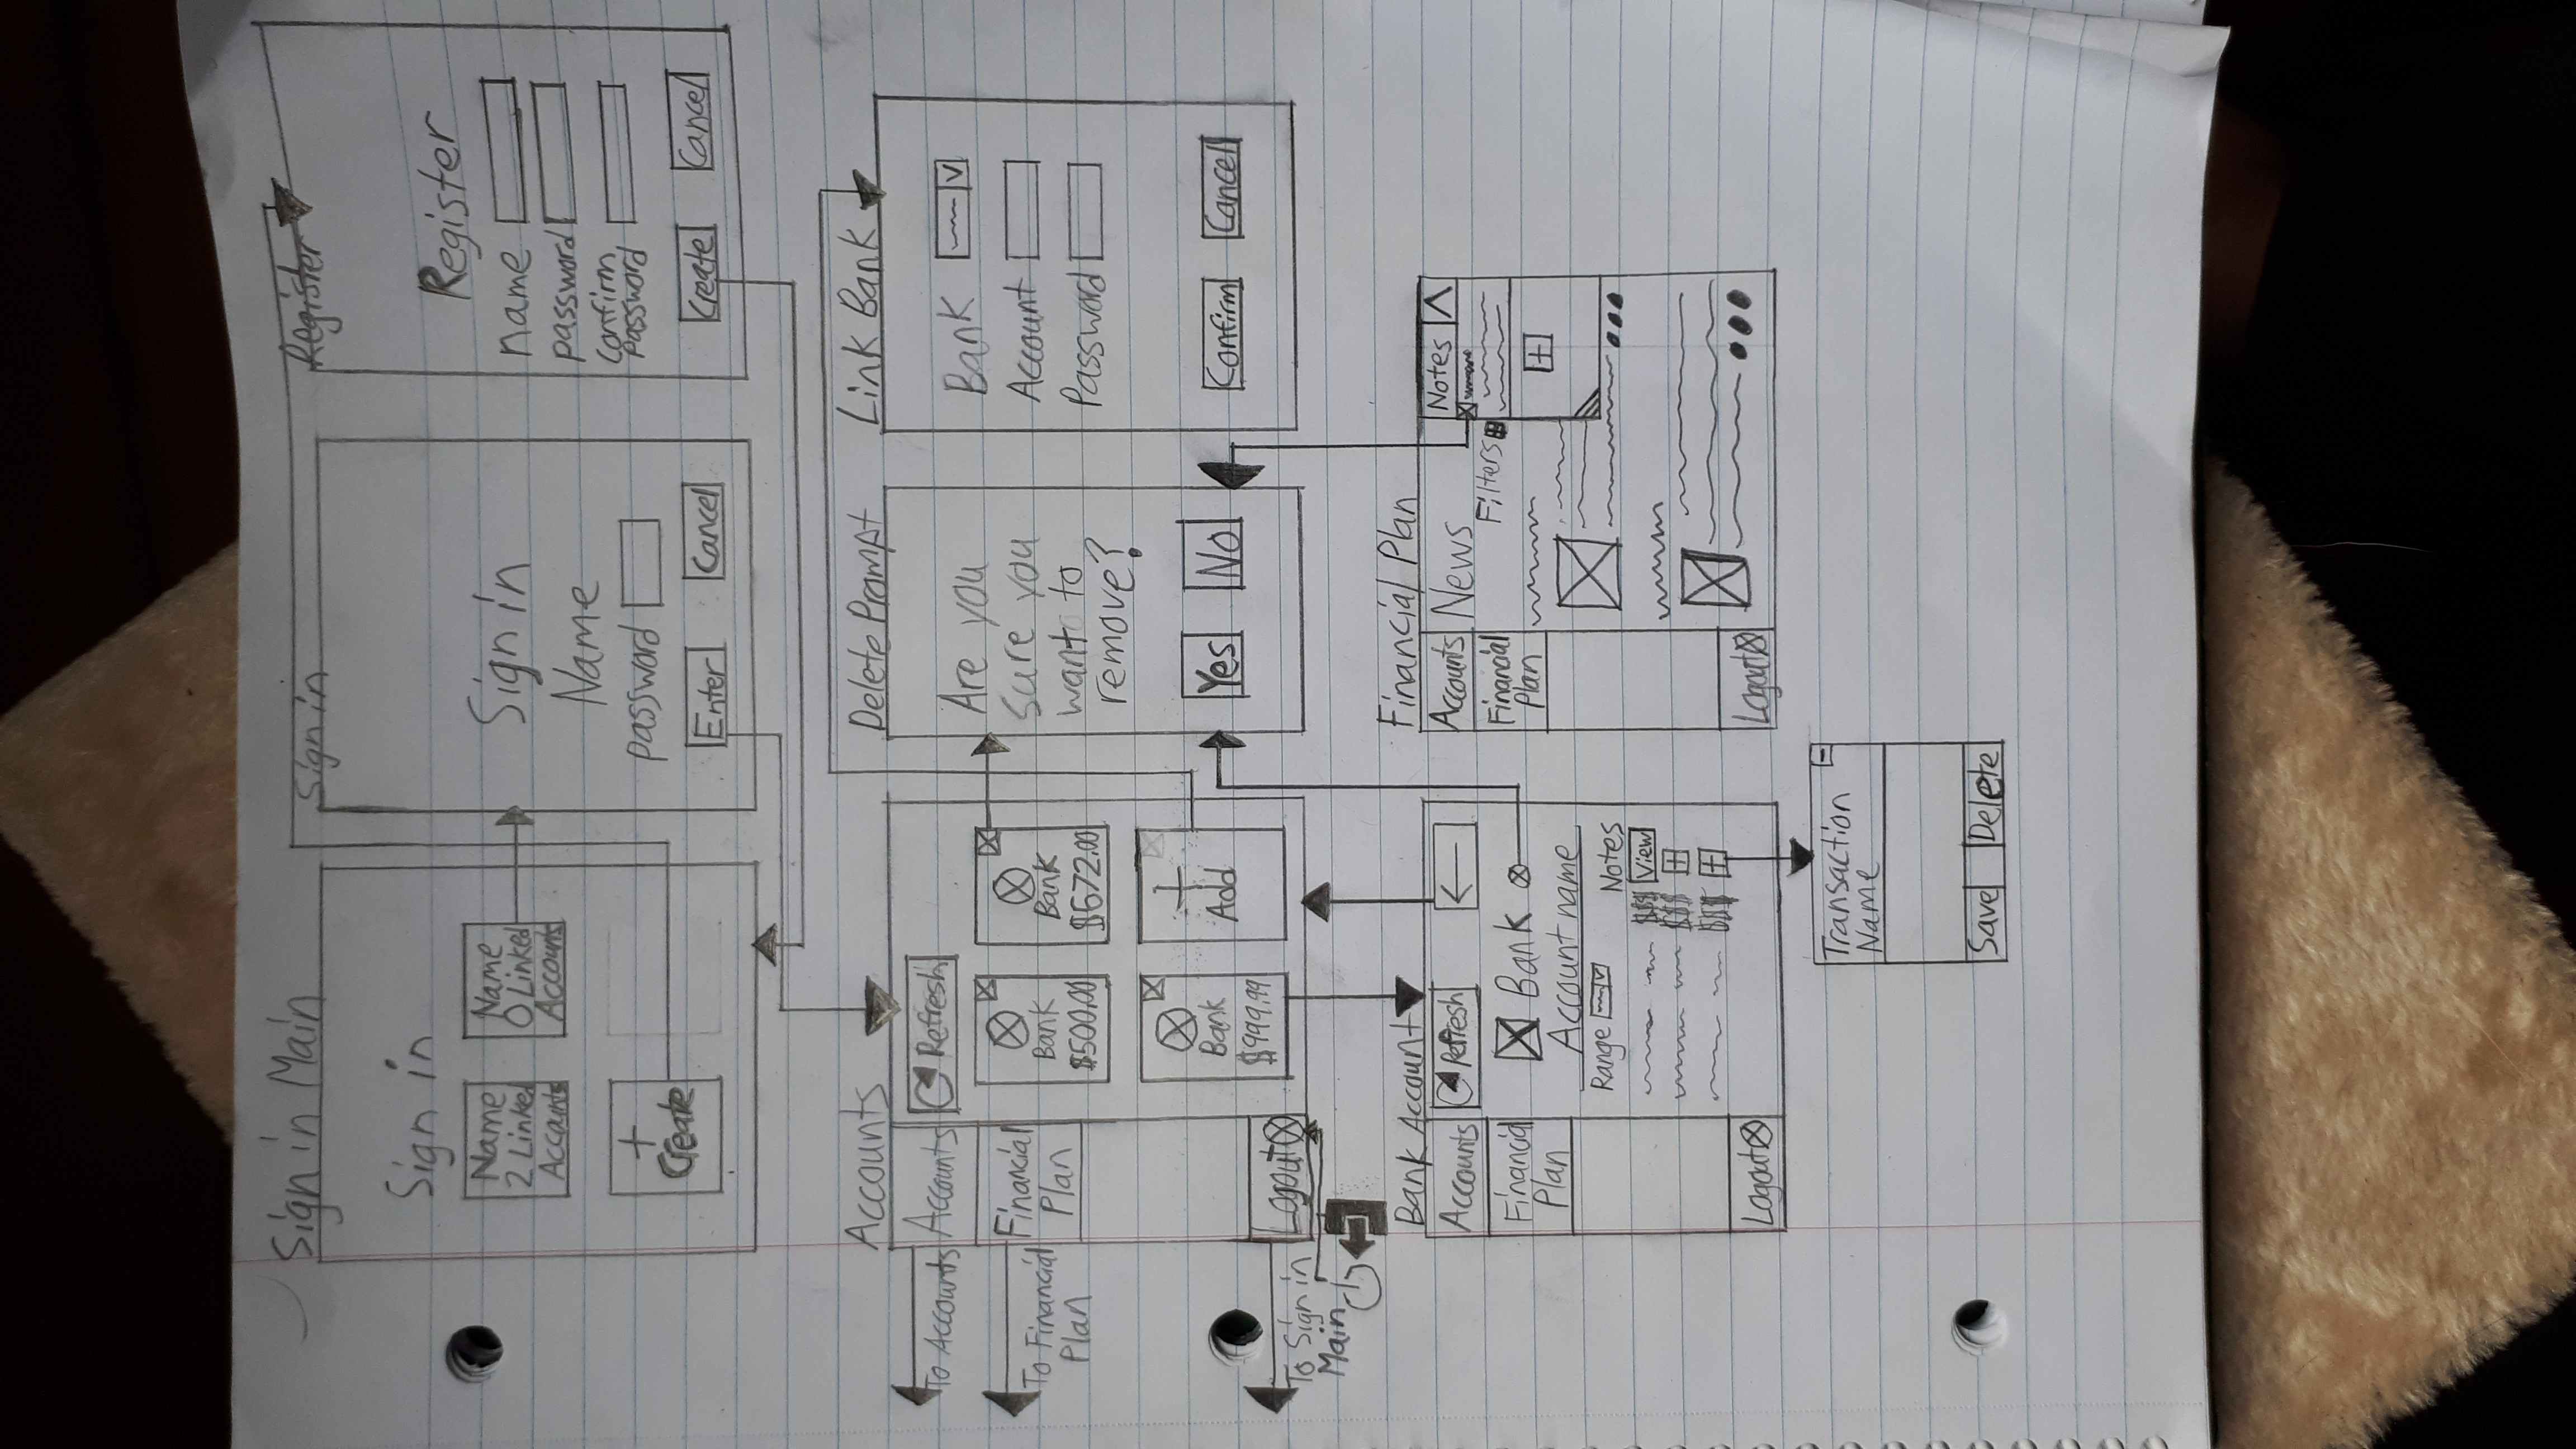 Sign in Main
Sign in
Register
Sign in
Name
2 Linked
Accounts
Name
0 Linked
Accounts
+
Create
Sign in
Name
password
Enter
Cancel
Register
name
password
confirm
password
Create
Cancel
Accounts
Delete Prompt
Link Bank
To Accounts
To Financial
Plan
To Sign in
Main
Accounts
Financial
Plan
Logout
Refresh
Bank
$500.00
Bank
$672.00
Bank
$999.99
+
Add
Are you
sure you
want to
remove?
Yes
No
Bank
Account
Password
Confirm
Cancel
Bank Account
Accounts
Financial
Plan
Logout
Refresh
Bank
Account name
Range
Notes
$$$ View
$$$ +
$$$ +
Financial Plan
Accounts
Financial
Plan
Logout
News
Filters
Notes
+
Transaction
Name
Save
Delete